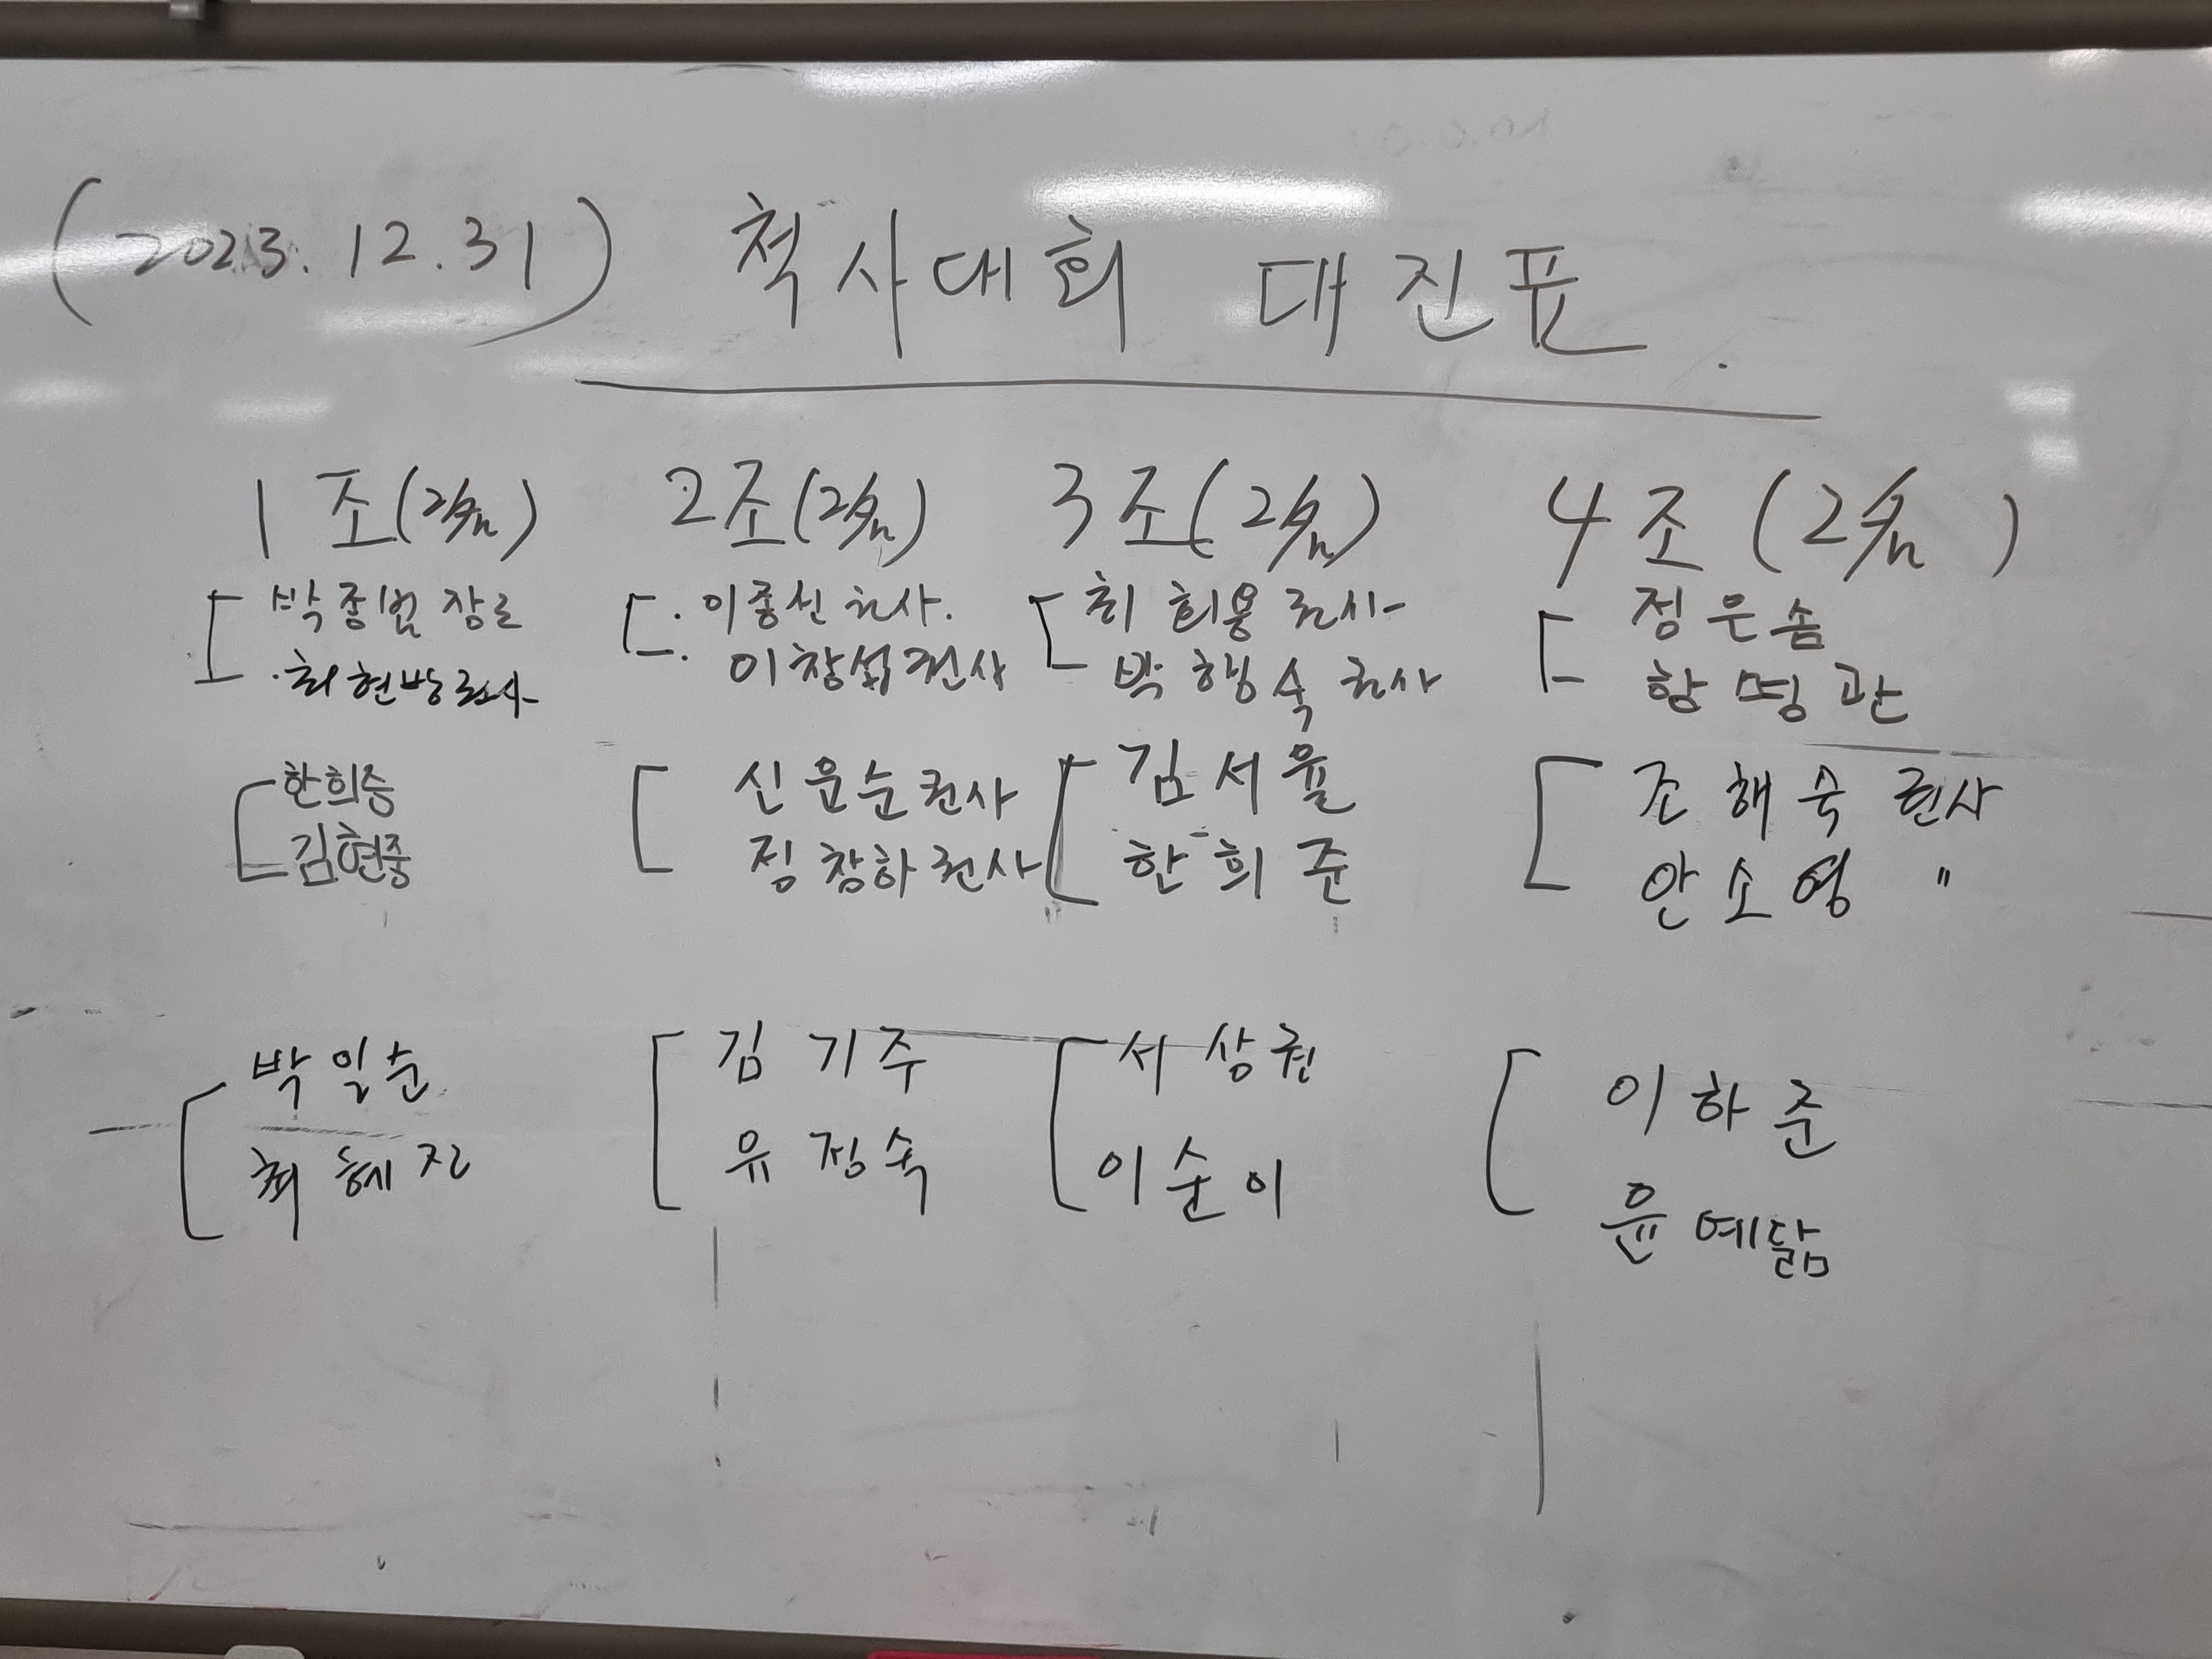 (2023. 12. 31) 척사대회 대진표.
1조(2人/n) 2조(2人/n) 3조(2人/n) 4조(2人/n)
박종범 장로
최현방 권사
이종신 권사.
이창섭 권사
최희용 권사
박행숙 권사
정은솜
함명관
한희승
김현중
신윤순 권사
정창하 권사
김서율
한희준
조해숙 권사
안소영 "
박일순
최혜진
김기주
유정숙
서상권
이순이
이하준
윤예닮